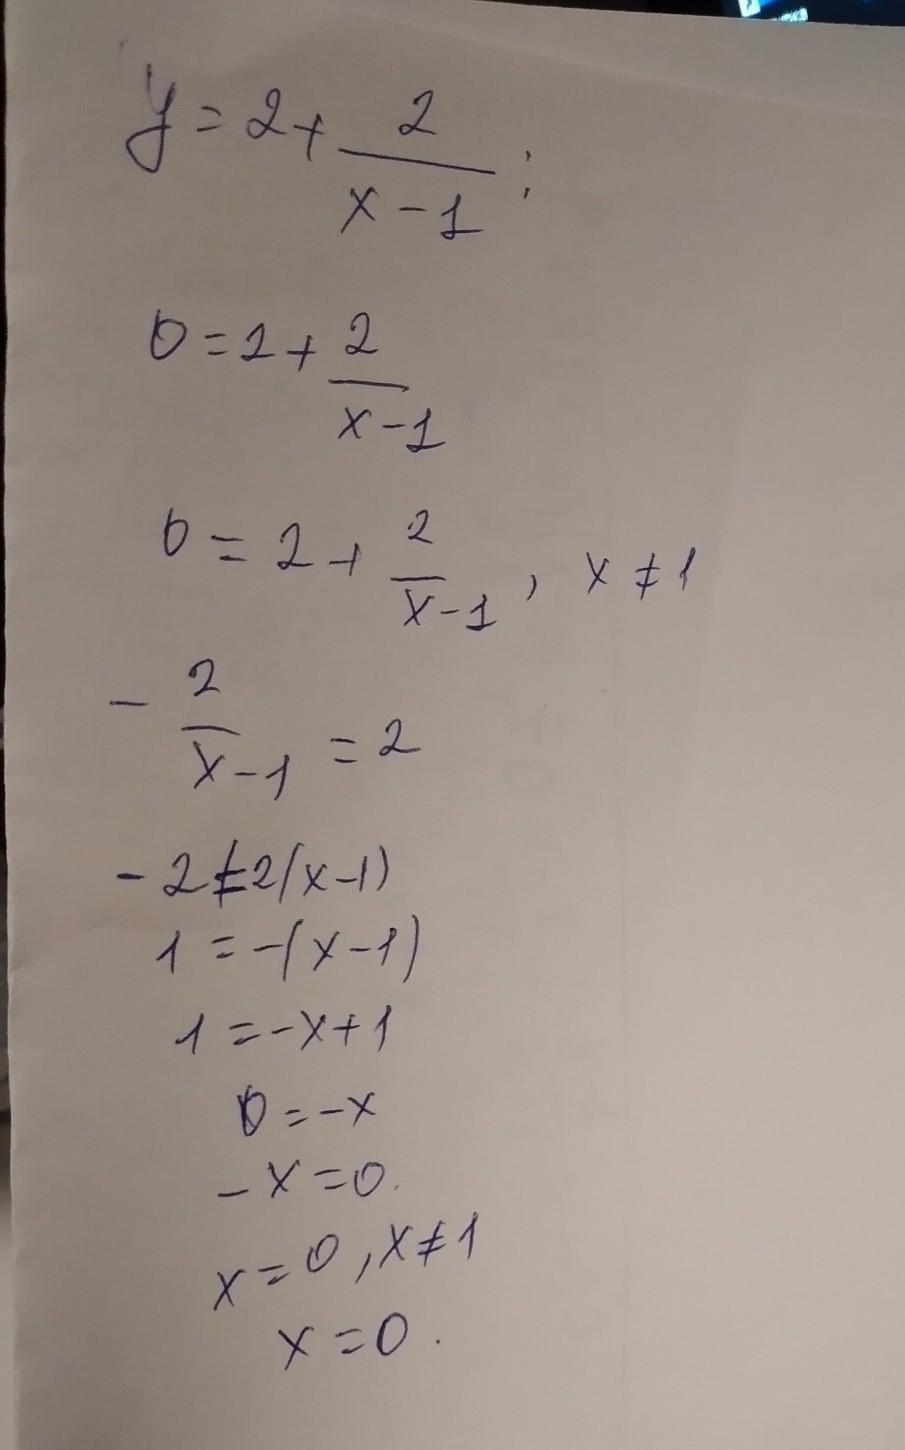 y = 2 + 2/(x - 1);
0 = 2 + 2/(x - 1)
0 = 2 + 2/(x - 1), x ≠ 1
- 2/(x - 1) = 2
- 2 = 2(x - 1)
1 = -(x - 1)
1 = -x + 1
0 = -x
-x = 0.
x = 0, x ≠ 1
x = 0.